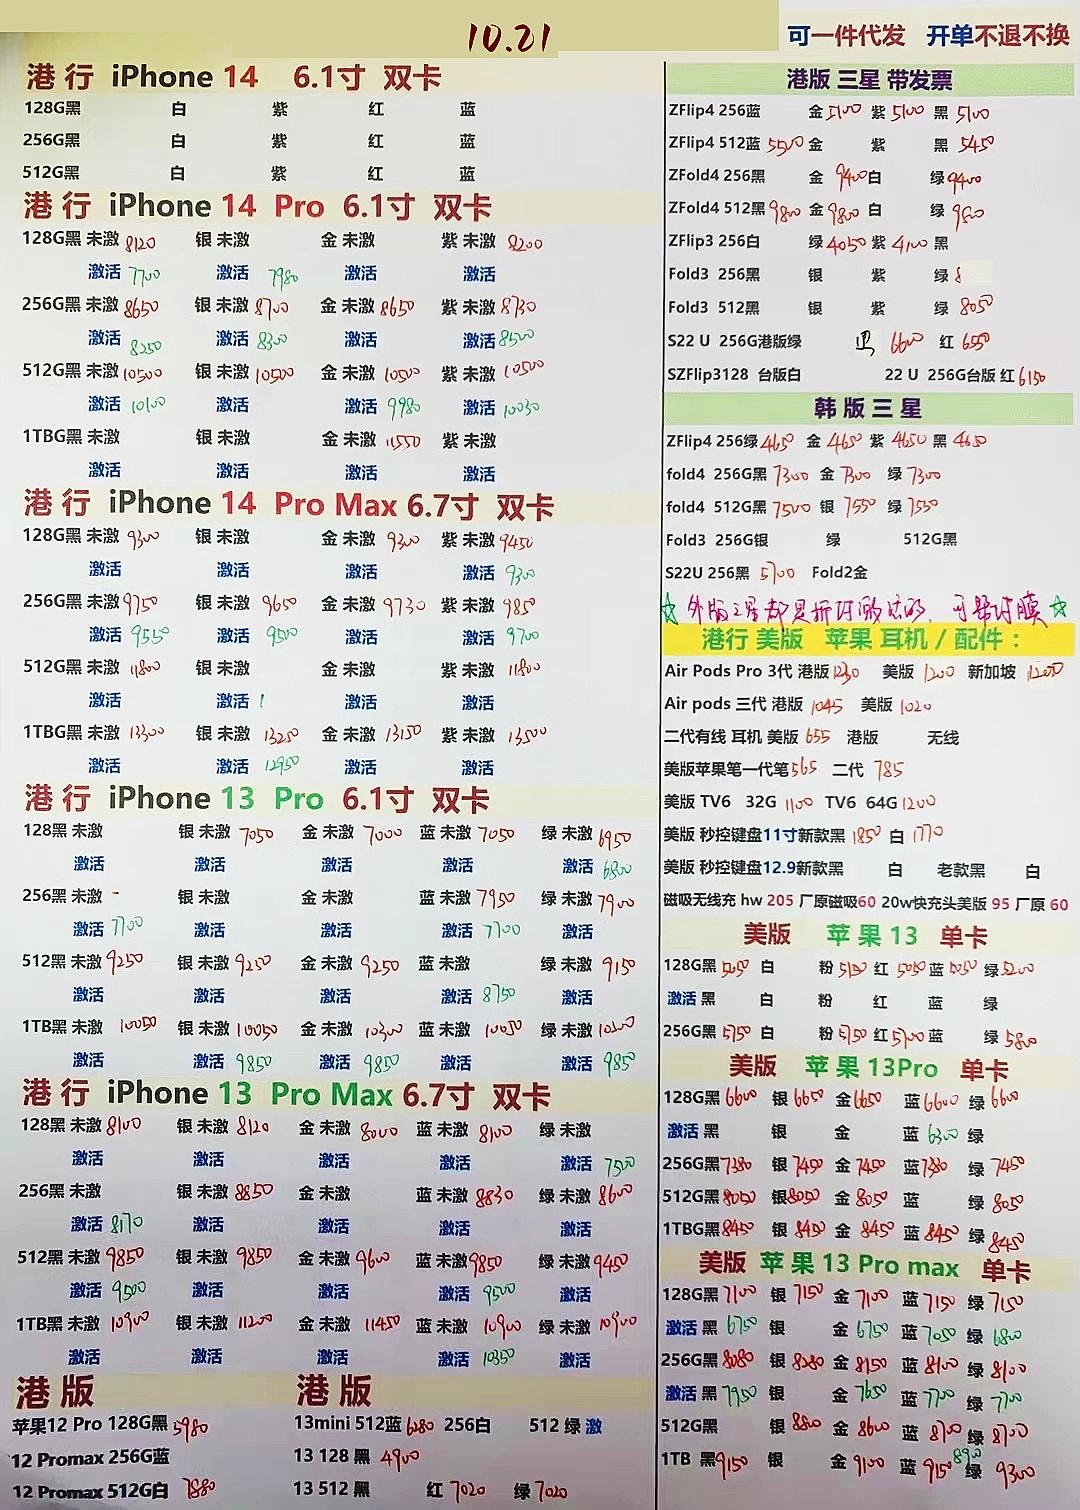 10.21
可一件代发 开单不退不换
港行 iPhone 14 6.1寸 双卡
128G黑 白 紫 红 蓝
256G黑 白 紫 红 蓝
512G黑 白 紫 红 蓝
港行 iPhone 14 Pro 6.1寸 双卡
128G黑 未激 8120 银 未激 金 未激 紫 未激 8200
激活 7700 激活 7980 激活 激活
256G黑 未激 8650 银 未激 8700 金 未激 8650 紫 未激 8730
激活 8250 激活 8300 激活 激活 8500
512G黑 未激 10500 银 未激 10500 金 未激 10500 紫 未激 10500
激活 10100 激活 激活 9980 激活 10030
1TBG黑 未激 银 未激 金 未激 11550 紫 未激
激活 激活 激活 激活
港行 iPhone 14 Pro Max 6.7寸 双卡
128G黑 未激 9300 银 未激 金 未激 9300 紫 未激 9450
激活 激活 激活 激活 9300
256G黑 未激 9750 银 未激 9650 金 未激 9730 紫 未激 9850
激活 9550 激活 9500 激活 激活 9700
512G黑 未激 11800 银 未激 金 未激 紫 未激 11800
激活 激活 激活 激活
1TBG黑 未激 13300 银 未激 13250 金 未激 13150 紫 未激 13500
激活 激活 12950 激活 激活
港行 iPhone 13 Pro 6.1寸 双卡
128黑 未激 银 未激 7050 金 未激 7000 蓝 未激 7050 绿 未激 6950
激活 激活 激活 激活 激活 6800
256黑 未激 - 银 未激 金 未激 蓝 未激 7950 绿 未激 7900
激活 7700 激活 激活 激活 7700 激活
512黑 未激 9250 银 未激 9250 金 未激 9250 蓝 未激 绿 未激 9150
激活 激活 激活 激活 8750 激活
1TB黑 未激 10050 银 未激 10050 金 未激 10300 蓝 未激 10050 绿 未激 10200
激活 激活 9850 激活 9850 激活 激活 985
港行 iPhone 13 Pro Max 6.7寸 双卡
128黑 未激 8100 银 未激 8120 金 未激 8000 蓝 未激 8100 绿 未激
激活 激活 激活 激活 激活 7500
256黑 未激 银 未激 8850 金 未激 蓝 未激 8830 绿 未激 8600
激活 8170 激活 激活 激活 激活
512黑 未激 9850 银 未激 9850 金 未激 9600 蓝 未激 9850 绿 未激 9450
激活 9500 激活 激活 激活 9500 激活
1TB黑 未激 10900 银 未激 11200 金 未激 11450 蓝 未激 10900 绿 未激 10900
激活 激活 激活 激活 10350 激活
港版
苹果12 Pro 128G黑 5980
12 Promax 256G蓝
12 Promax 512G白 7880
港版
13mini 512蓝 6280 256白 512 绿 激
13 128 黑 4900
13 512 黑 红 7020 绿 7020
港版 三星 带发票
ZFlip4 256蓝 金 5100 紫 5100 黑 5100
ZFlip4 512蓝 5500 金 紫 黑 5450
ZFold4 256黑 金 9400 白 绿 9400
ZFold4 512黑 9800 金 9800 白 绿 9800
ZFlip3 256白 绿 4050 紫 4100 黑
Fold3 256黑 银 紫 绿 8
Fold3 512黑 银 紫 绿 8050
S22 U 256G港版绿 6600 红 6550
SZFlip3128 台版白 22 U 256G台版 红 6150
韩版三星
ZFlip4 256绿 4650 金 4650 紫 4650 黑 4650
fold4 256G黑 7300 金 7300 绿 7300
fold4 512G黑 7500 银 7550 绿 7550
Fold3 256G银 绿 512G黑
S22U 256黑 5700 Fold2金
☆ 外版三星都是拆封激活的, 可帮封膜 ☆
港行 美版 苹果 耳机 / 配件:
Air Pods Pro 3代 港版 1230 美版 1200 新加坡 1200
Air pods 三代 港版 1045 美版 1020
二代有线 耳机 美版 655 港版 无线
美版苹果笔一代笔 565 二代 785
美版 TV6 32G 1100 TV6 64G 1200
美版 秒控键盘11寸新款黑 1850 白 1770
美版 秒控键盘12.9新款黑 白 老款黑 白
磁吸无线充 hw 205 厂原磁吸60 20w快充头美版 95 厂原 60
美版 苹果13 单卡
128G黑 5050 白 粉 5100 红 5050 蓝 5050 绿 5200
激活 黑 白 粉 红 蓝 绿
256G黑 5750 白 粉 5750 红 5700 蓝 绿 5800
美版 苹果13Pro 单卡
128G黑 6600 银 6650 金 6650 蓝 6600 绿 6600
激活 黑 银 金 蓝 6300 绿
256G黑 7380 银 7450 金 7450 蓝 7380 绿 7450
512G黑 8050 银 8050 金 8050 蓝 绿 8050
1TBG黑 8450 银 8450 金 8450 蓝 8450 绿 8450
美版 苹果13 Pro max 单卡
128G黑 7100 银 7150 金 7100 蓝 7150 绿 7150
激活 黑 6750 银 金 6750 蓝 7050 绿 6800
256G黑 8080 银 8280 金 8150 蓝 8100 绿 8100
激活 黑 7950 银 金 7650 蓝 7700 绿 7700
512G黑 银 8800 金 8600 蓝 8700 绿 8700
1TB 黑 9150 银 金 9100 蓝 9150 8900 绿 9300